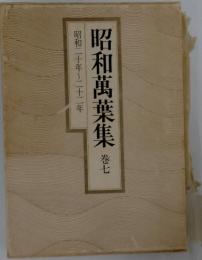 昭和萬葉集 巻七
昭和二十年~二十二年